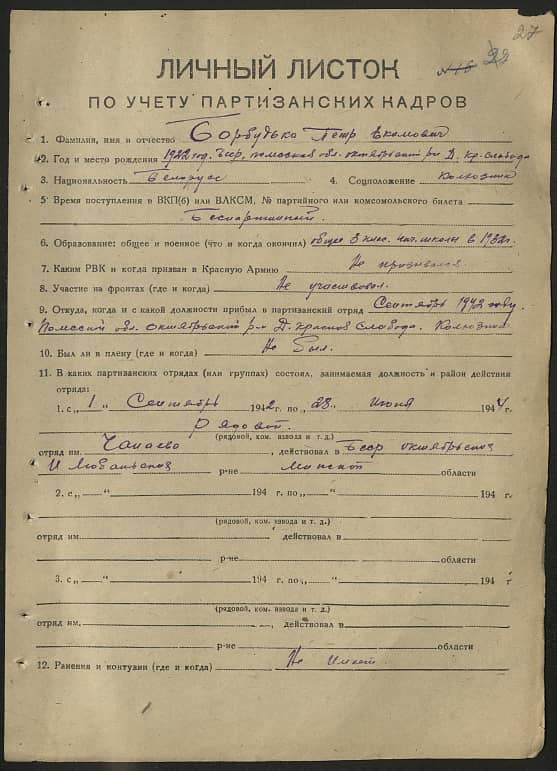 27
№ 16 22
ЛИЧНЫЙ ЛИСТОК
ПО УЧЕТУ ПАРТИЗАНСКИХ КАДРОВ
1. Фамилия, имя и отчество Борбутько Петр Якимович
2. Год и место рождения 1922 год. Бсср, полесская обл. октябрьский р-н Д. кр. слобода
3. Национальность Белорус 4. Соцположение Колхозник
5. Время поступления в ВКП(б) или ВЛКСМ, № партийного или комсомольского билета
Беспартийный.
6. Образование: общее и военное (что и когда окончил) общее 3 клас. нач. школы в 1932г.
7. Каким РВК и когда призван в Красную Армию Не призывался
8. Участие на фронтах (где и когда) Не участвовал.
9. Откуда, когда и с какой должности прибыл в партизанский отряд Сентябрь 1942 году.
Полесской обл. октябрьский р-н Д. красная Слобода. Колхозник
10. Был ли в плену (где и когда) Не был.
11. В каких партизанских отрядах (или группах) состоял, занимаемая должность и район действия
отряда:
1. с „1“ Сентябрь 1942 г. по „23„ июня 1944 г.
Рядовой.
(рядовой, ком. взвода и т. д.)
отряд им. Чапаева, действовал в Бсср октябрьский
И Любаньский р-не минской области
2. с „ “ 194 г. по „ “ 194 г.
(рядовой, ком. взвода и т. д.)
отряд им. действовал в
р-не области
3. с „ “ 194 г. по „ “ 194 г
(рядовой, ком. взвода и т. д.)
отряд им. , действовал в
р-не области
12. Ранения и контузии (где и когда) Не имеет.